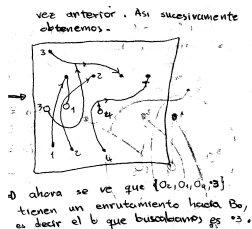 vez anterior. Asi sucesivamente
obtenemos.
3
2
3
1
4
1
2
4
ahora se ve que {O2, O1, O4, •3}
tienen un enrutamiento hacia B0,
es decir el b que buscabamos es •3.